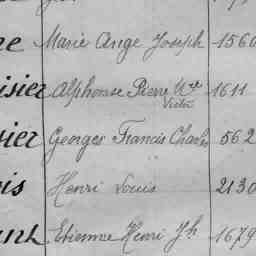 Marie Ange Joseph 1560
isier Alphonse Pierre Victor 1611
Georges Francis Charles 562
is Henri Louis 2130
Etienne Henri Jh 1679